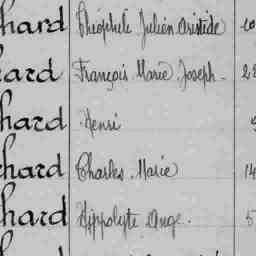 hard Théophile Julien Aristide
hard François Marie Joseph
hard Henri
hard Charles Marie
hard Hippolyte Ange.